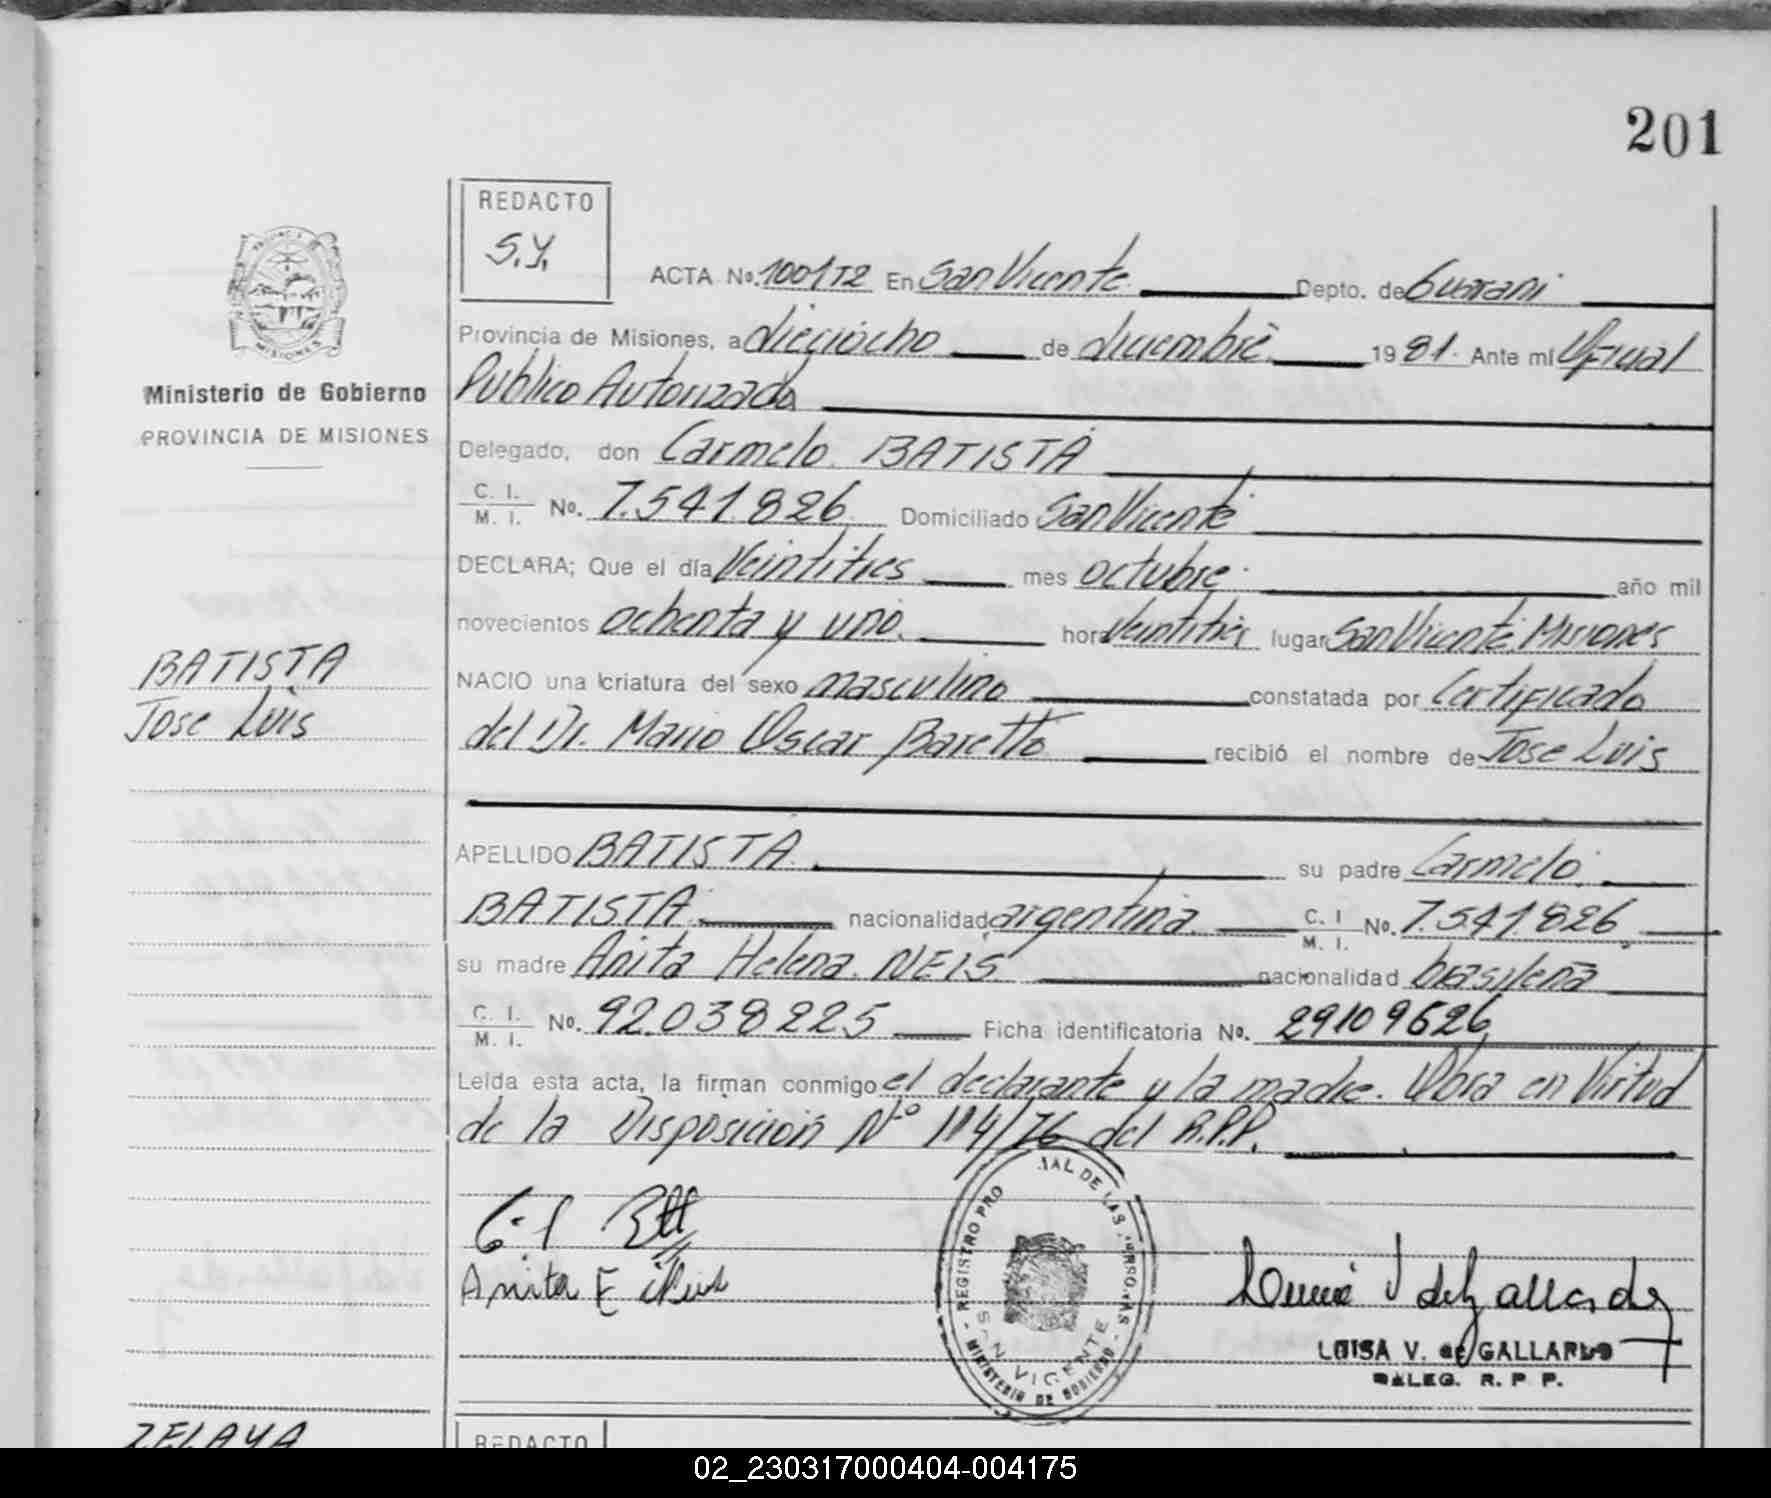 201
REDACTO
S.Y.
ACTA No. 1001T2 En San Vicente Depto. de Guarani
Provincia de Misiones, a dieciocho de diciembre 1981. Ante mi Oficial
Publico Autorizada
Delegado, don Carmelo BATISTA
C. I. / M. I. No. 7.541.826 Domiciliado San Vicente
DECLARA; Que el día Veintitres mes octubre año mil
novecientos ochenta y uno. hora Veintitres lugar San Vicente, Misiones
NACIO una criatura del sexo masculino constatada por Certificado
del Dr. Mario Oscar Baretto recibió el nombre de Jose Luis
APELLIDO BATISTA su padre Carmelo
BATISTA nacionalidad argentina C. I / M. I. No. 7.541.826
su madre Anita Helena NEIS nacionalidad brasileña
C. I. / M. I. No. 92.038225 Ficha identificatoria No. 29109626
Leida esta acta, la firman conmigo el declarante y la madre. Obra en Virtud
de la Disposición Nº 114/76 del R.P.P.
Anita E
REGISTRO PRO IAL DE LAS
SAN VICENTE
MINISTERIO DE GOBIERNO
LUISA V. de GALLARDO
DALEG. R. P P.
PROVINCIA DE
MISIONES
Ministerio de Gobierno
PROVINCIA DE MISIONES
BATISTA
Jose Luis
ZELAYA
REDACTO
02_230317000404-004175